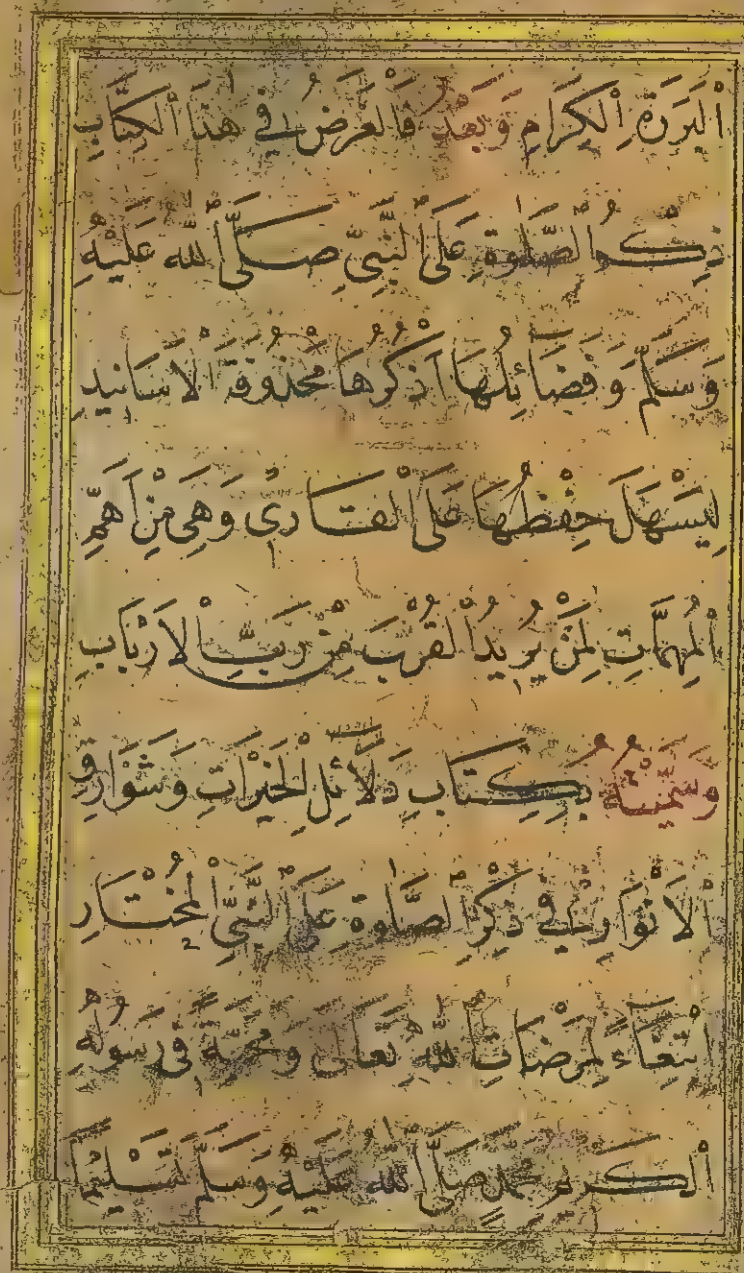 اَلْبَرَرَةِ الْكِرَامِ وَبَعْدُ فَالْغَرَضُ فِي هٰذَا الْكِتَابِ
ذِكْرُ الصَّلٰوةِ عَلَى النَّبِيِّ صَلَّى اللّٰهُ عَلَيْهِ
وَسَلَّمَ وَفَضَائِلُهَا اَذْكُرُهَا مَحْذُوفَةَ الْاَسَانِيدِ
لِيَسْهَلَ حِفْظُهَا عَلَى الْقَارِئِ وَهِيَ مِنْ اَهَمِّ
الْمُهِمَّاتِ لِمَنْ يُرِيدُ الْقُرْبَ مِنْ رَبِّ الْاَرْبَابِ
وَسَمَّيْتُهُ بِكِتَابِ دَلَائِلِ الْخَيْرَاتِ وَشَوَارِقِ
الْاَنْوَارِ فِي ذِكْرِ الصَّلٰوةِ عَلَى النَّبِيِّ الْمُخْتَارِ
ابْتِغَاءً لِمَرْضَاتِ اللّٰهِ تَعَالٰى وَمَحَبَّةً فِي رَسُولِهِ
الْكَرِيمِ مُحَمَّدٍ صَلَّى اللّٰهُ عَلَيْهِ وَسَلَّمَ تَسْلِيمًا